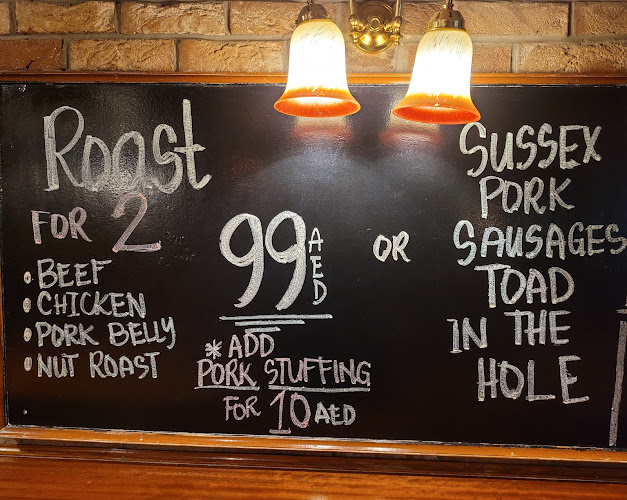 Roast
FOR 2
• BEEF
• CHICKEN
• PORK BELLY
• NUT ROAST
99 AED
* ADD
PORK STUFFING
FOR 10 AED
OR
SUSSEX
PORK
SAUSAGES
TOAD
IN THE
HOLE